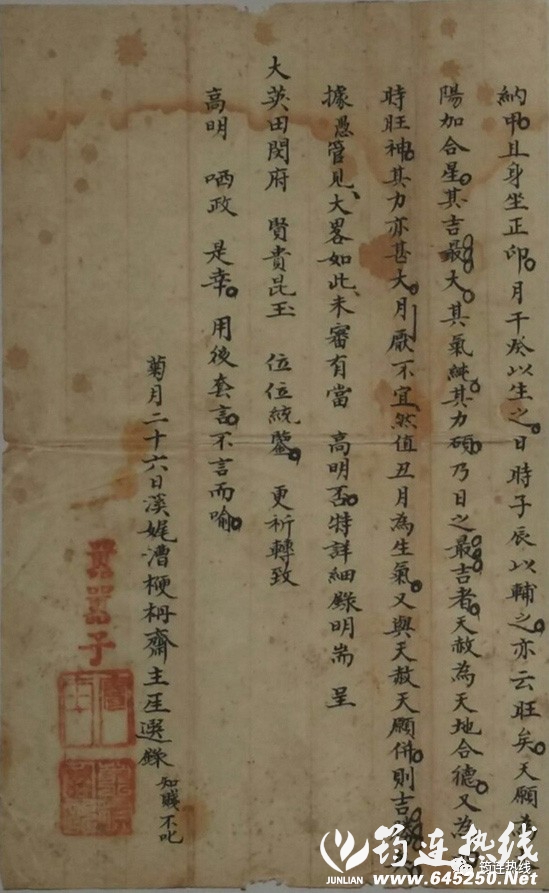 納甲且身坐正印月干癸以生之日時子辰以輔之亦云旺矣天願為
陽加合星其吉最大其氣純其力碩乃日之最吉者天赦為天地合德又為
時旺神其力亦甚大月厭不宜然值丑月為生氣又與天赦天願併則吉
據愚管見大畧如此未審有當 高明否特詳細錄明耑 呈
大英田閔府 賢貴昆玉 位位統鑒 更祈轉致
高明 哂政 是幸 用後套言不言而喻
菊月二十六日溪娓漕梗枬齋主厓選錄 知賤不叱
子
筠连热线
JUNLIAN
www.645250.Net
筠连热线